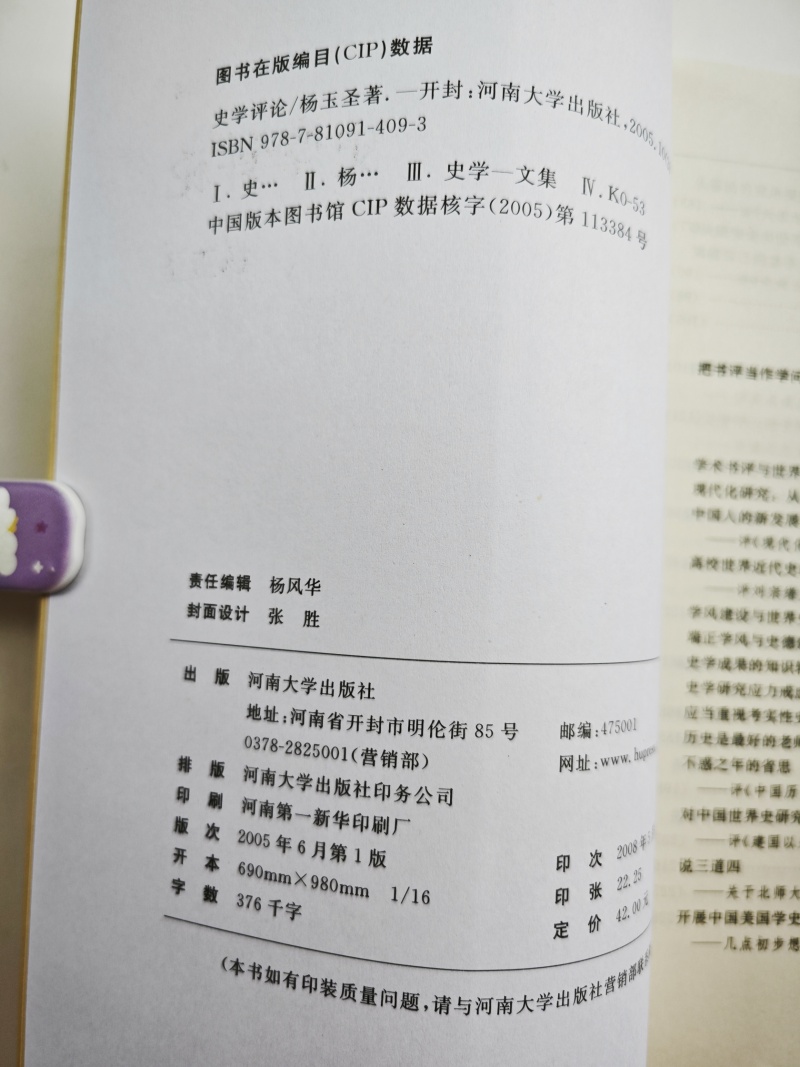 图书在版编目(CIP)数据
史学评论/杨玉圣著.—开封:河南大学出版社,2005.10
ISBN 978-7-81091-409-3
Ⅰ.史… Ⅱ.杨… Ⅲ.史学—文集 Ⅳ.K0-53
中国版本图书馆CIP数据核字(2005)第113384号
责任编辑 杨风华
封面设计 张 胜
出 版 河南大学出版社
地址:河南省开封市明伦街85号 邮编:475001
0378-2825001(营销部) 网址:www.
排 版 河南大学出版社印务公司
印 刷 河南第一新华印刷厂
版 次 2005年6月第1版 印 次 2008年
开 本 690mm×980mm 1/16 印 张 22.25
字 数 376千字 定 价 42.00元
(本书如有印装质量问题,请与河南大学出版社营销部联
把书评当作学问
学术书评与世界
现代化研究,从
中国人的新发展
——评《现代化
高校世界近代史
学风建设与世界
端正学风与史德
史学成果的知识
史学研究应力戒
应当重视考实性
历史是最好的老师
不惑之年的省思
——评《中国历
对中国世界史研究
——评《建国以
说三道四
——关于北师大
开展中国美国学史
——几点初步想